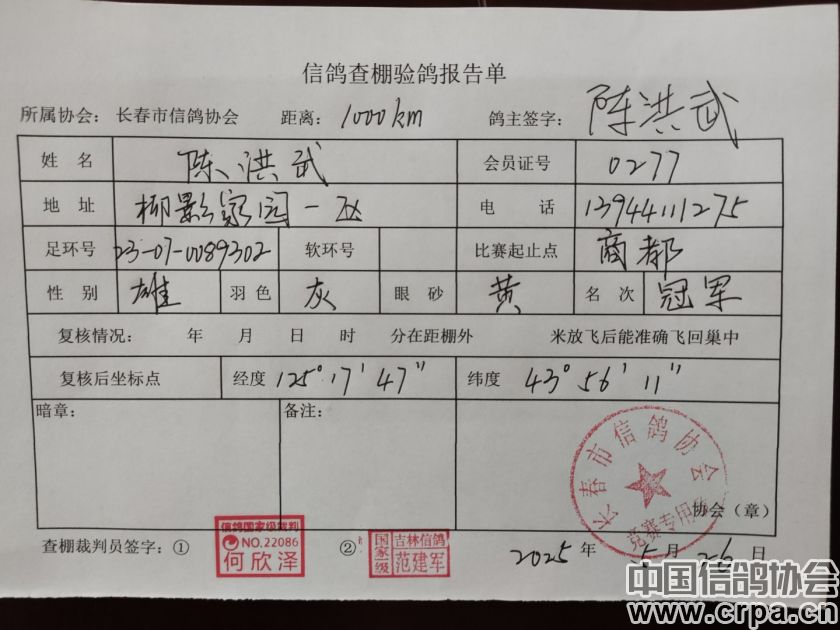 信鸽查棚验鸽报告单
所属协会: 长春市信鸽协会 距离: 1000km 鸽主签字: 陈洪武
姓 名 陈洪武 会员证号 0277
地 址 柳影家园一区 电 话 13944111275
足环号 23-07-0089302 软环号 比赛起止点 商都
性 别 雄 羽色 灰 眼 砂 黄 名 次 冠军
复核情况: 年 月 日 时 分在距棚外 米放飞后能准确飞回巢中
复核后坐标点 经度 125°17'47" 纬度 43°56'11"
暗章: 备注:
长春市信鸽协会
竞赛专用章
协会(章)
查棚裁判员签字: ① 信鸽国家级裁判 NO.22086 何欣泽 ② 国家级 吉林信鸽 范建军 2025 年 5 月 26 日
中国信鸽协会
www.crpa.cn